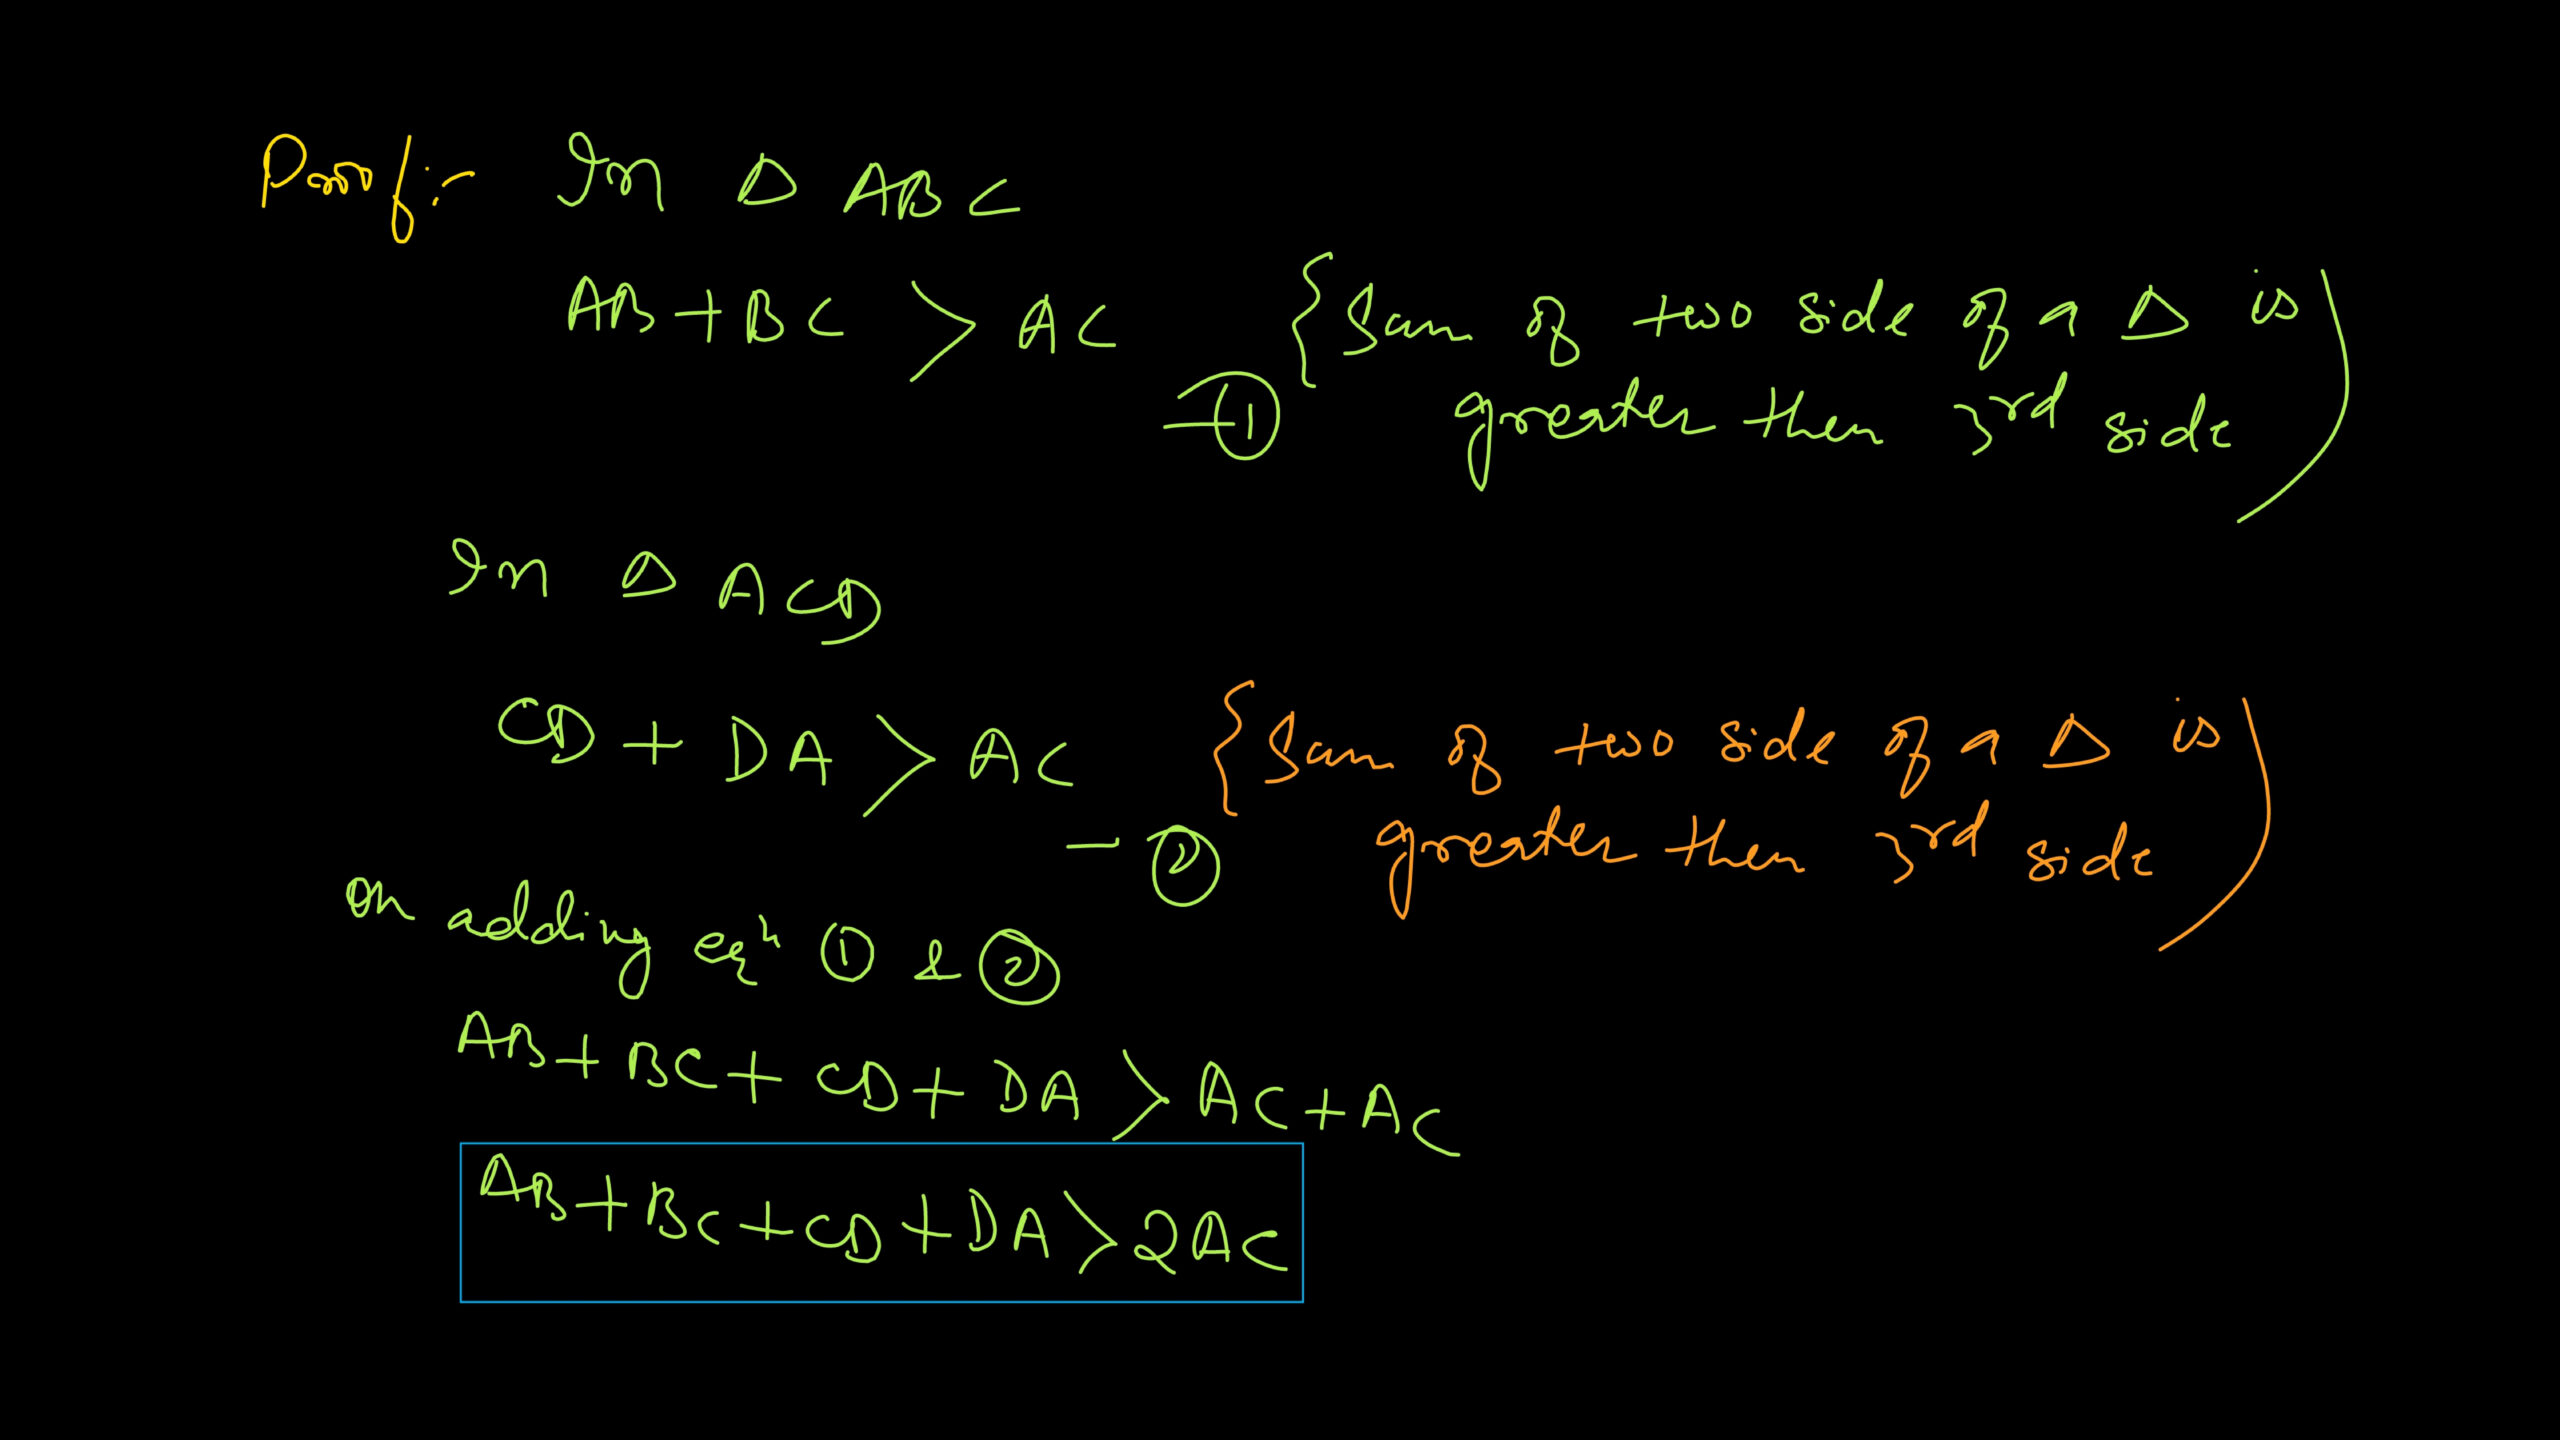 Proof:- In Δ ABC
AB+BC > AC {Sum of two side of a Δ is
—① greater then 3rd side)
In Δ ACD
CD + DA > AC {Sum of two side of a Δ is
—② greater then 3rd side)
on adding eqⁿ ① & ②
AB+BC+CD+DA > AC+AC
AB+BC+CD+DA > 2AC